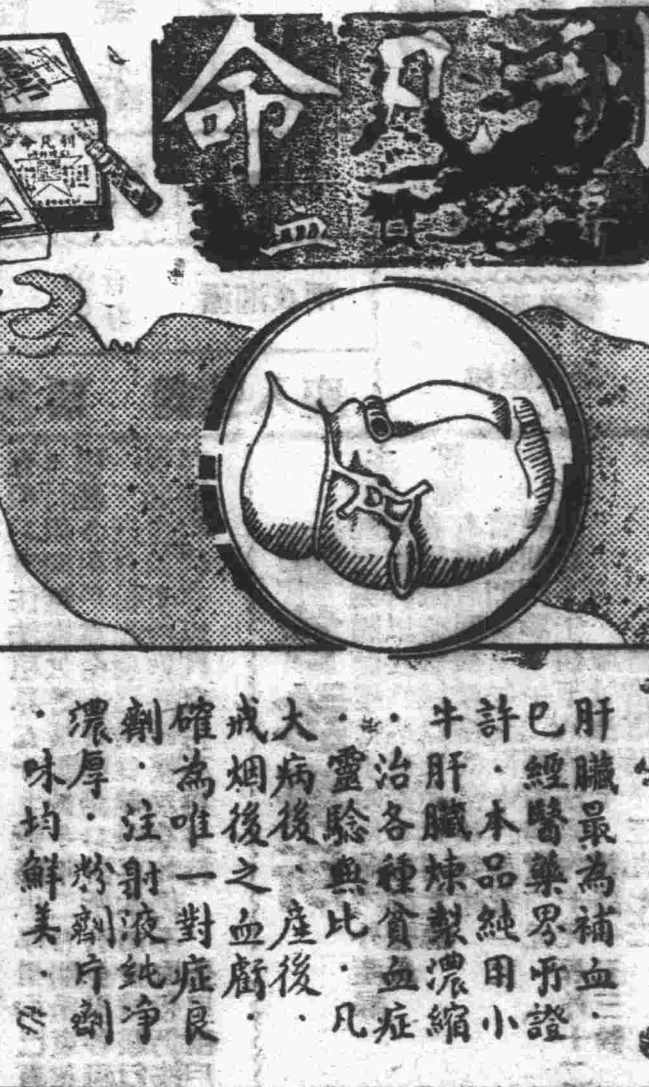 利凡命
血
命凡利
肝臟最為補血·
已經醫藥界所證
許·本品純用小
牛肝臟煉製濃縮
·治各種貧血症
·靈驗無比·凡
大病後·產後·
戒烟後之血虧·
確為唯一對症良
劑·注射液純净
濃厚·粉劑片劑
·味均鮮美·